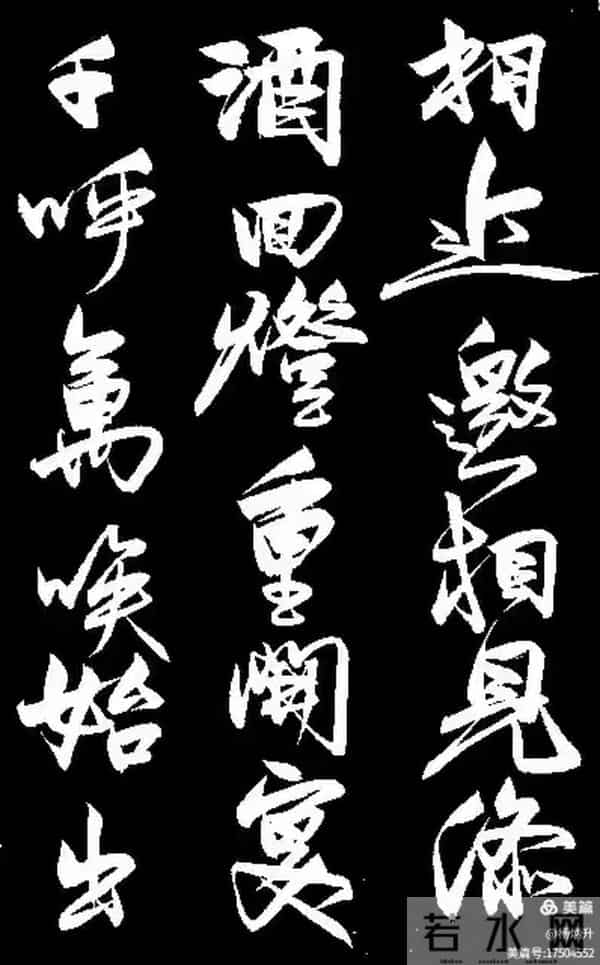 相近邀相見添
酒回燈重開宴
千呼萬喚始出
美篇
若水网
美篇号:17504552